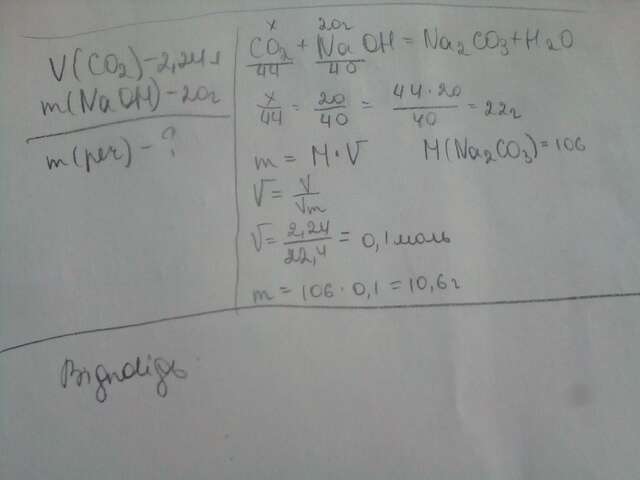 V(CO₂) - 2,24 л
m(NaOH) - 20г
m(реч) - ?
x 20г
CO₂ + NaOH = Na₂CO₃ + H₂O
44 40
x/44 = 20/40 = 44·20/40 = 22г
m = M·V M(Na₂CO₃) = 106
V = V/Vm
V = 2,24/22,4 = 0,1 моль
m = 106·0,1 = 10,6г
Відповідь